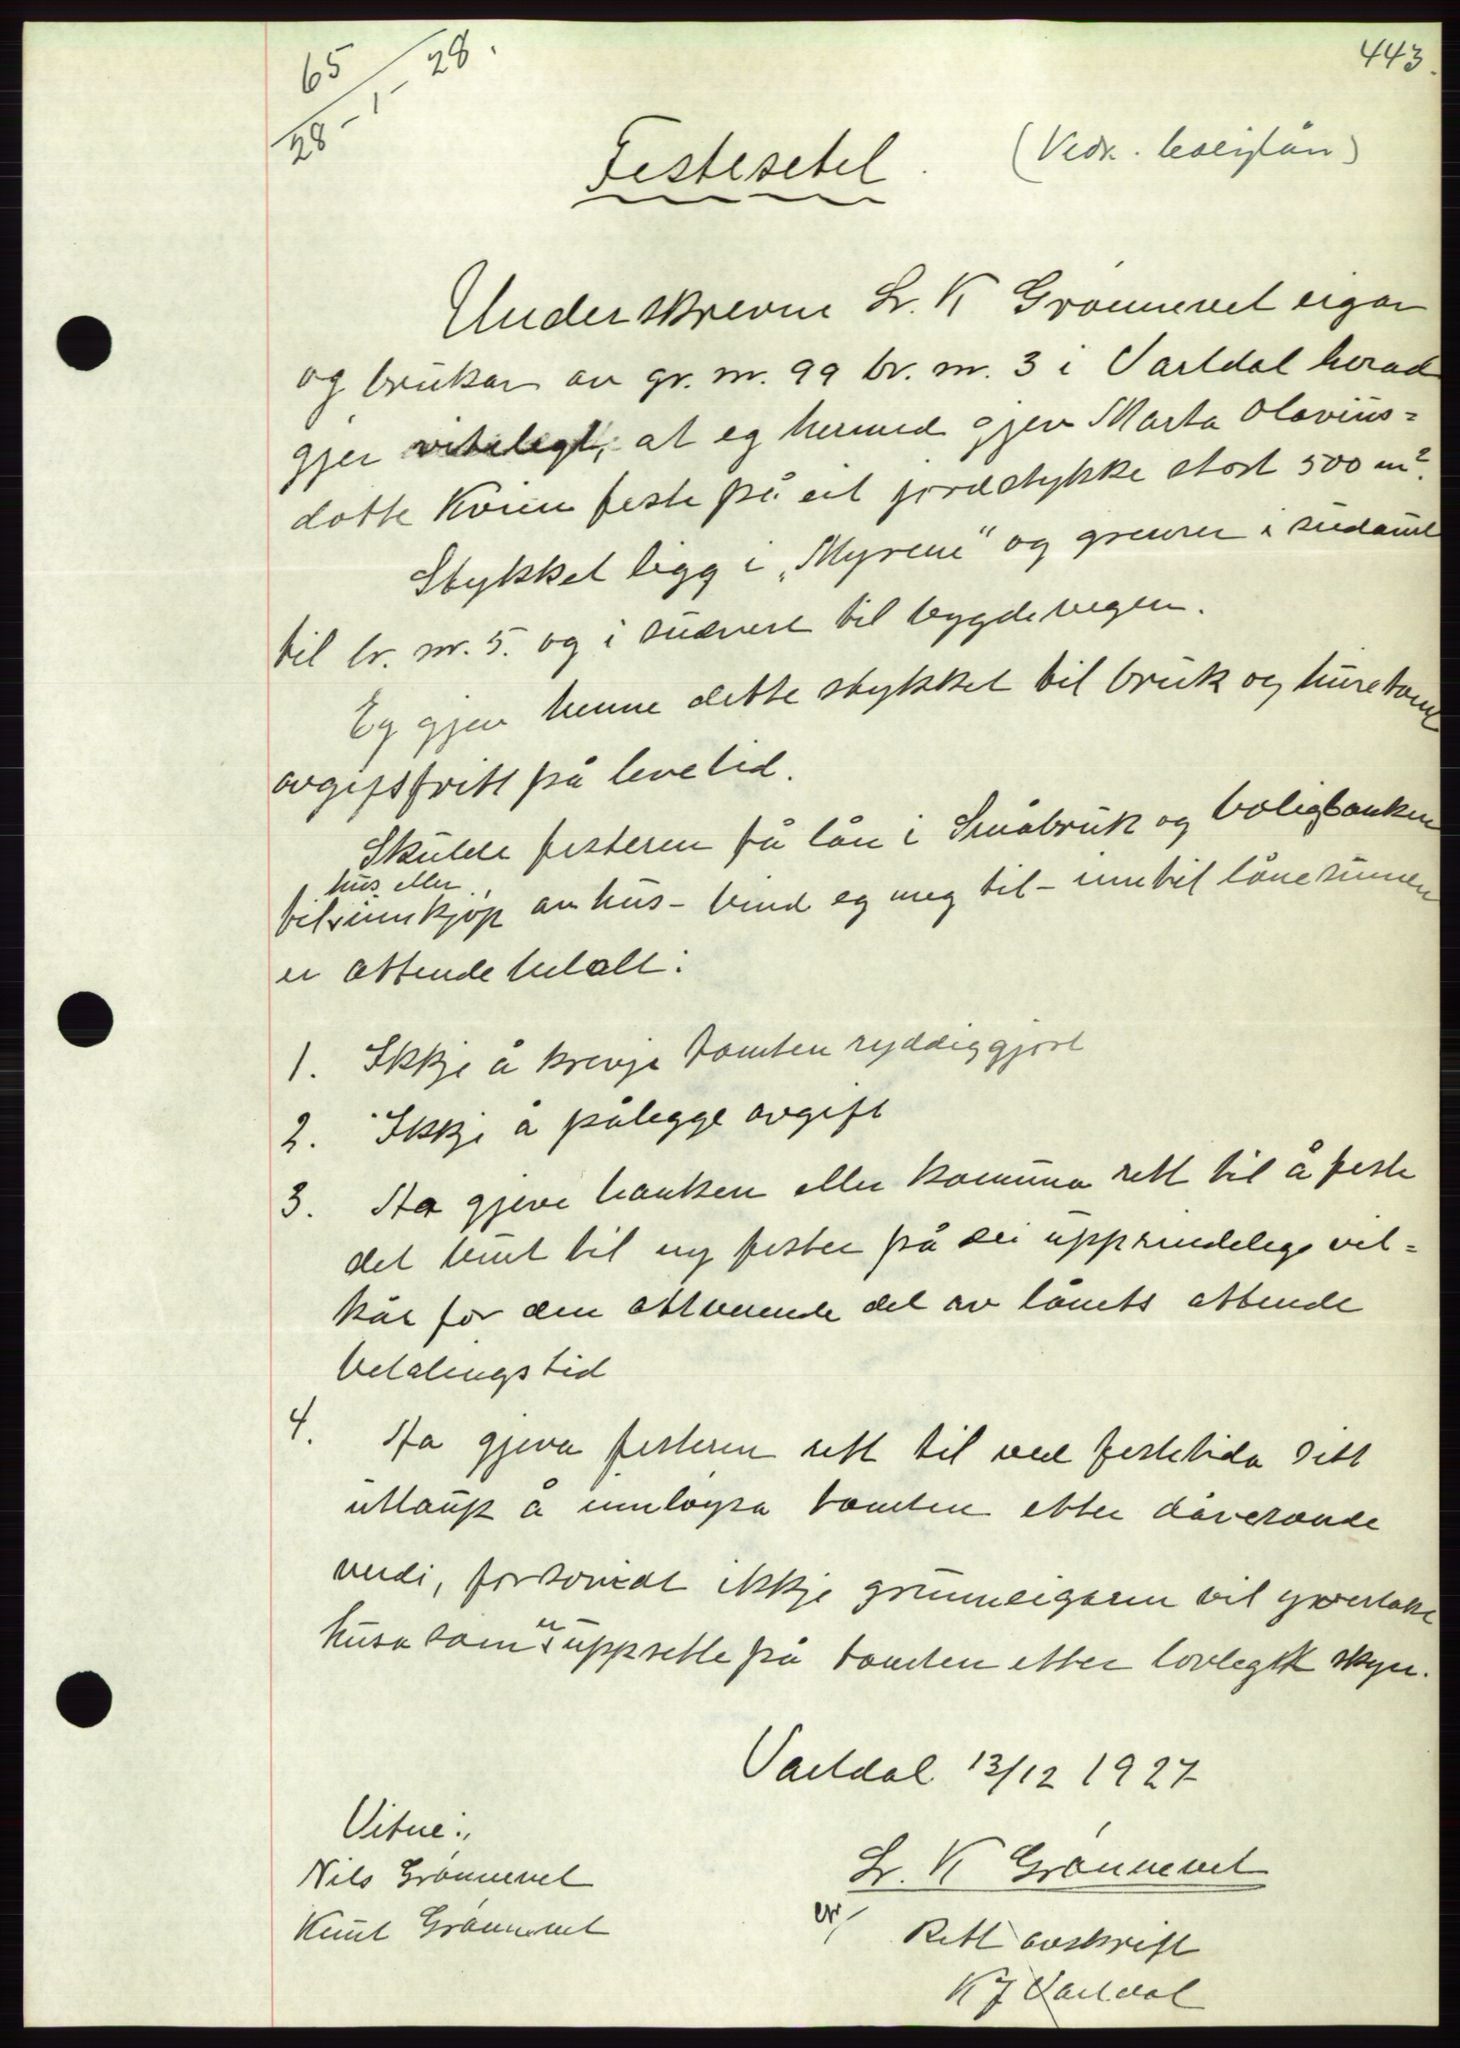 65
28-1-28.
443.
Festesetel.
(Vedr. boliglån)
Underskrevne Sr. K Grønnevet eigar
og brukar av gr. nr. 99 br. nr. 3 i Vartdal herad
gjer viteleg, at eg hermed gjev Marta Olavius=
dotte Kvien feste på eit jordstykke stort 500 m².
Stykket ligg i "Myrene" og grenser i sudaust
til br. nr. 5. og i sudvest til bygdevegen.
Eg gjev henne dette stykket til bruk og hustomt
avgifsfritt på levetid.
Skulde festeren få lån i Småbruk og boligbanken
hus eller
til innkjøp av hus - bind eg meg til - inntil lånesummen
er attendebetalt:
1. Ikkje å krevja tomten ryddiggjort
2. Ikkje å pålegge avgift
3. Aa gjeve banken eller kommuna rett til å feste
det burt til ny fester på dei upprindelege vil=
kår for den attverende del av lånets attende
betalingstid
4. Aa gjeva festeren rett til ved festetida sitt
utlaup å innløysa tomten etter dåverande
verdi, forsovidt ikkje grunneigaren vil yvertaka
husa som er uppsette på tomten etter lovlegt skyn.
Vartdal 13/12 1927
Vitne:
Nils Grønnevet
Knut Grønnevet
Sr. K Grønnevet
Rett avskrift
er/
K J Vartdal